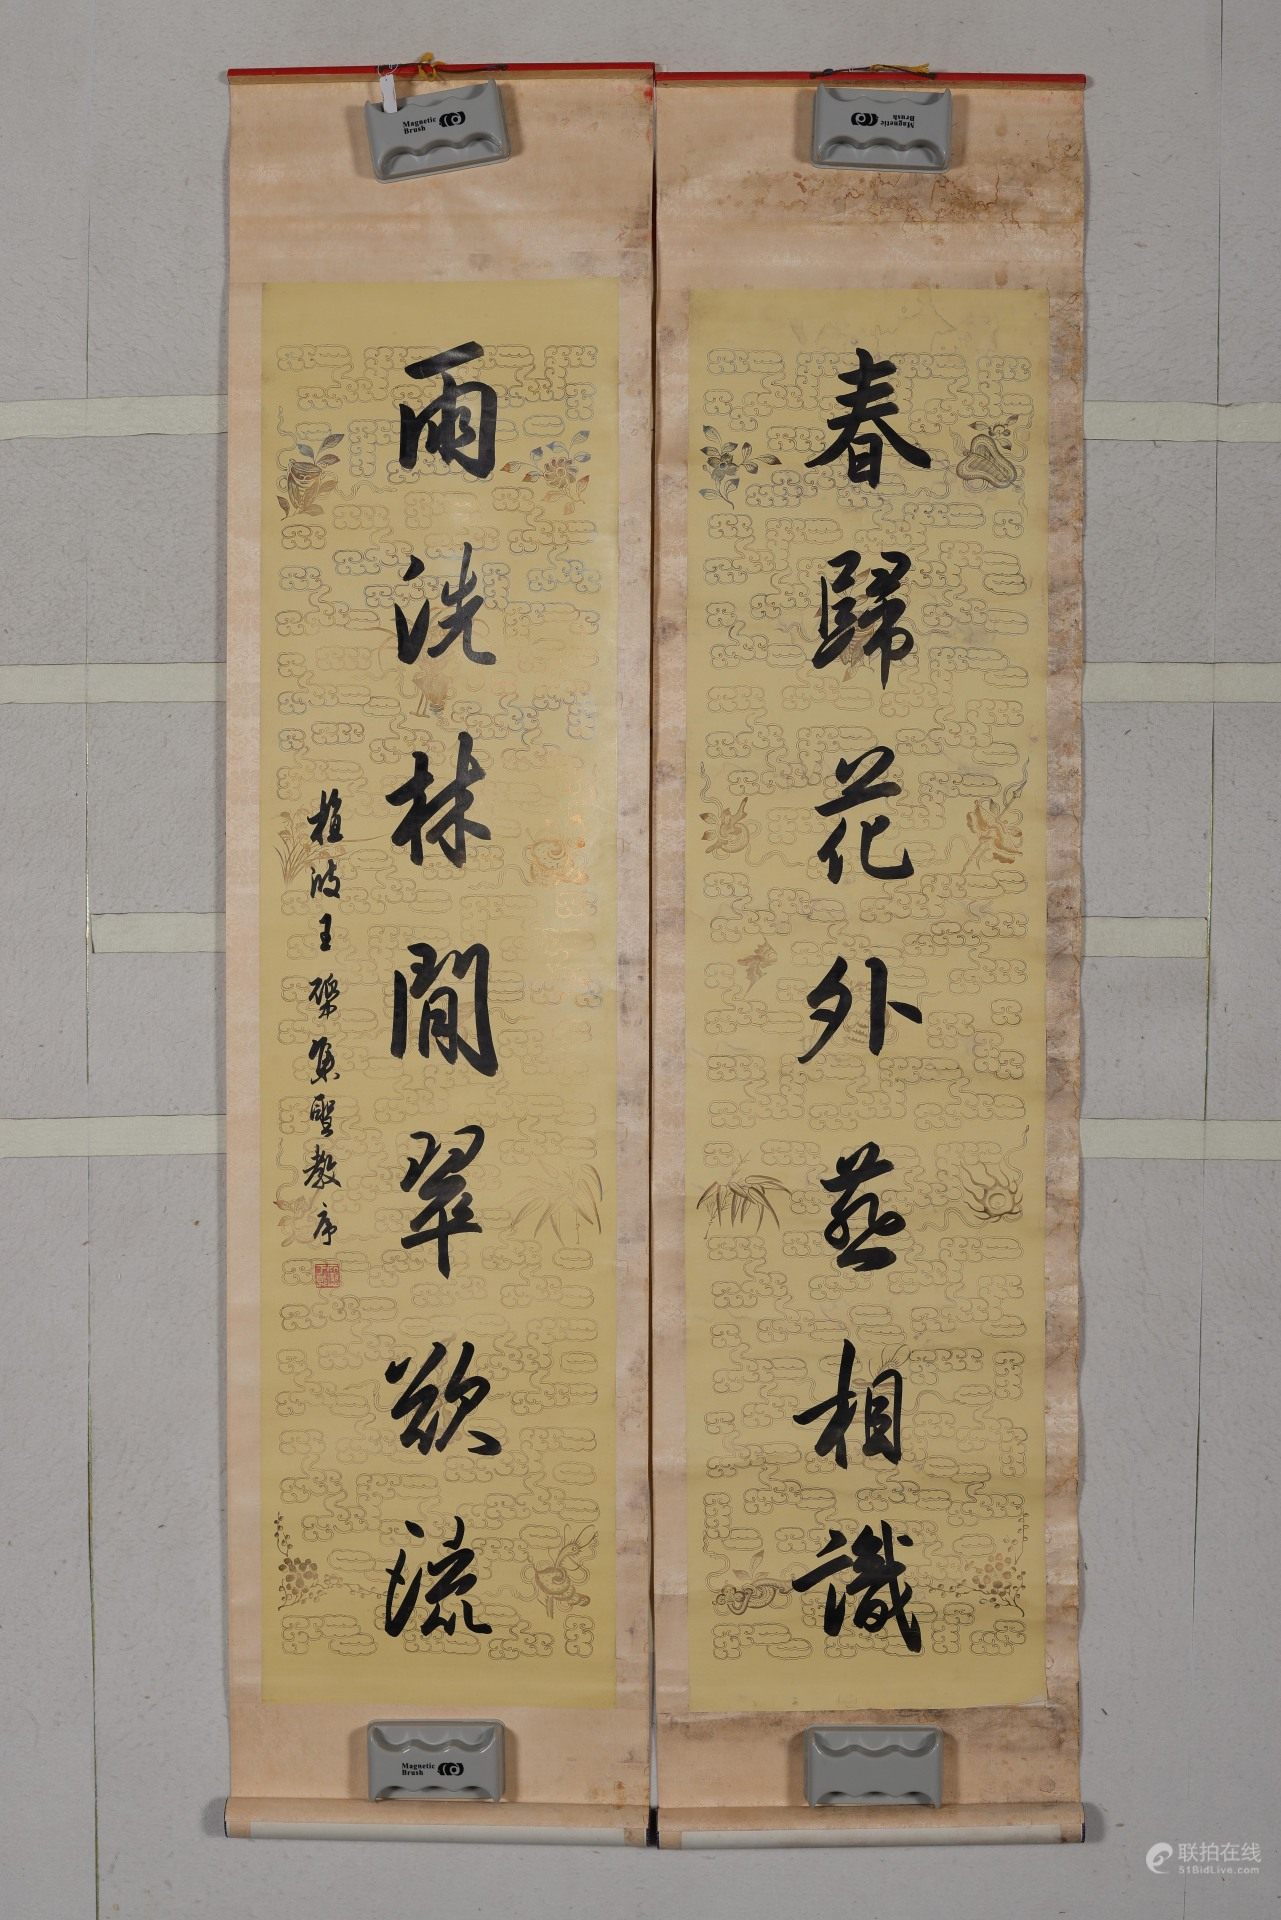 春歸花外燕相識
雨洗林間翠欲流
植波王榘集聖教序
Magnetic
Brush
Magnetic
Brush
Magnetic
Brush
联拍在线
51BidLive.com